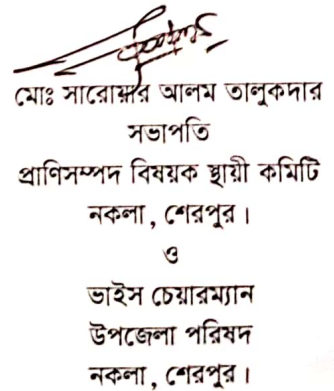 মোঃ সারোয়ার আলম তালুকদার
সভাপতি
প্রাণিসম্পদ বিষয়ক স্থায়ী কমিটি
নকলা, শেরপুর।
ও
ভাইস চেয়ারম্যান
উপজেলা পরিষদ
নকলা, শেরপুর।